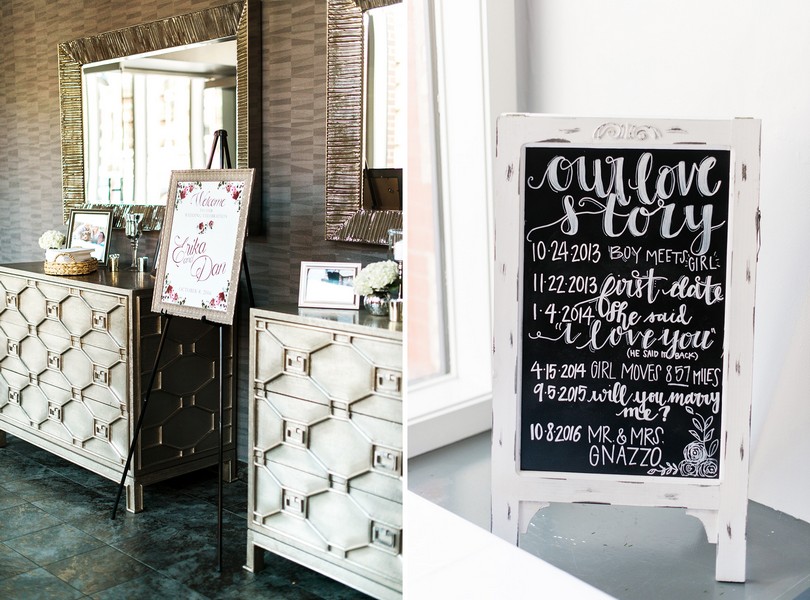 Welcome
Erika
and
Dan
our love
story
10·24·2013 BOY MEETS GIRL
11·22·2013 first date
1·4·2014 She said
"i love you"
(HE SAID IT BACK)
4·15·2014 GIRL MOVES 857 MILES
9·5·2015 will you marry
me?
10·8·2016 MR. & MRS.
GNAZZO